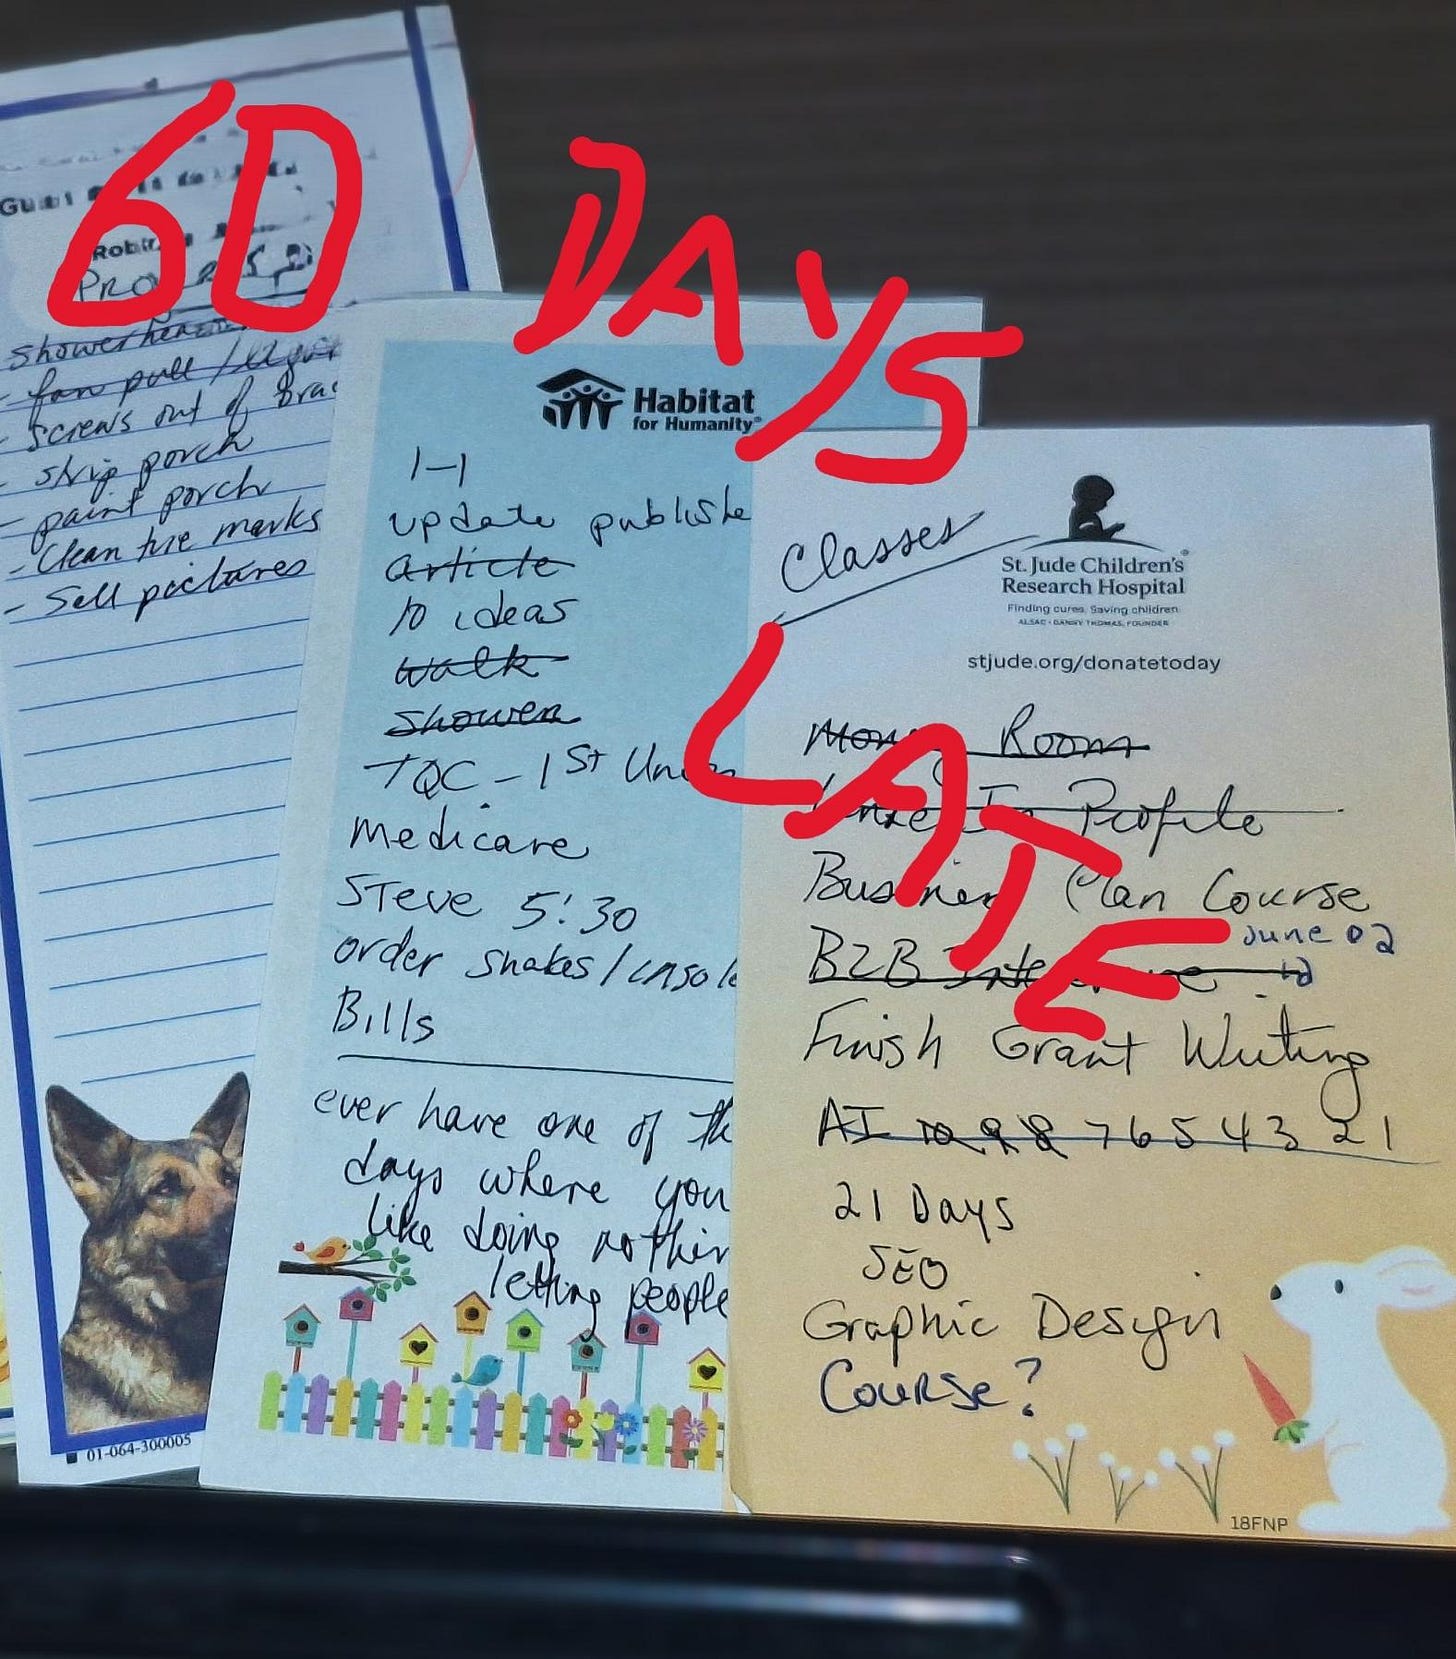 60 DAYS LATE
Projects
shower head
- fan pull /
- screws out of
- strip porch
- paint porch
- Clean tire marks
- Sell pictures
01-064-300005
Habitat
for Humanity®
1-1
update publishe
article
10 ideas
walk
shower
TQC - 1st
Medicare
Steve 5:30
order shakes / insole
Bills
ever have one of th
days where you
like doing nothin
letting people
Classes
St. Jude Children's
Research Hospital
Finding cures. Saving children.
ALSAC • DANNY THOMAS, FOUNDER
stjude.org/donatetoday
Room
In Profile
Business Plan Course
B2B June 02
Finish Grant Writing
AI 10 9 8 7 6 5 4 3 2 1
21 Days
SEO
Graphic Design
Course?
18FNP